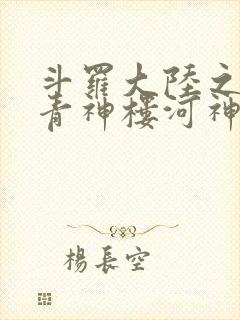 斗羅大陸之
青神樓河神
楊長空